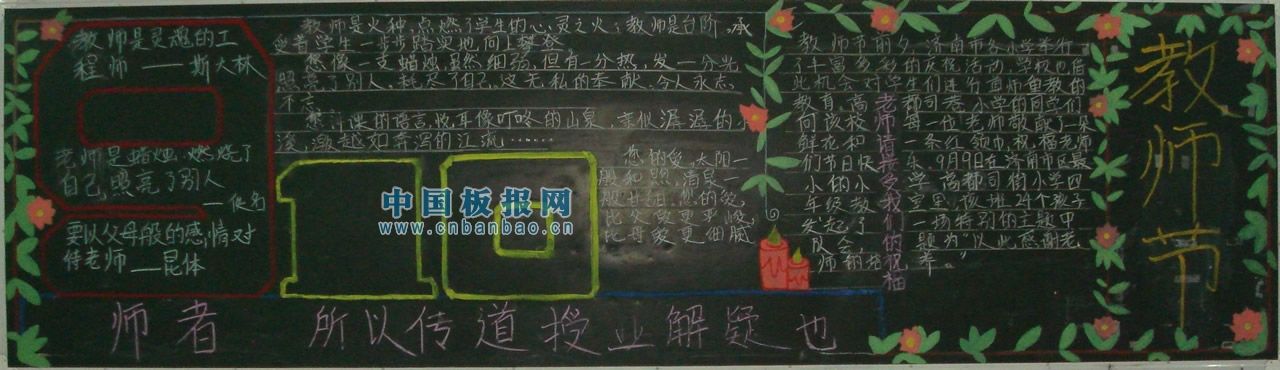 教师是灵魂的工
程师——斯大林
老师是蜡烛，燃烧了
自己，照亮了别人
——佚名
要以父母般的感情对
待老师——昆体
教师是火种，点燃了学生的心灵之火；教师是台阶，承
受着学生一步步踏实地向上攀登
您像一支蜡烛，虽然细弱，但有一分热，发一分光，
照亮了别人，耗尽了自己。这无私的奉献，令人永志
不忘
您的爱，太阳一
般和煦，清泉一
般甘甜。您的爱，
比父爱更严峻，
比母爱更细腻
中国板报网
www.cnbanbao.cn
教师节前夕，济南市各小学举行
了丰富多彩的庆祝活动，学校也借
此机会对学生们进行尊师重教的
教育。高都司巷小学的同学们
向该校每一位老师敬献了一朵
鲜花和一条红领巾，祝福老师
们节日快乐。9月9日在济南市区最
小的小学高都司街小学四
年级教室里，该班24个孩子
发起了一场特别的主题中
队会，题为“以此感谢老
师
老师请接受我们的祝福
教师节
师者 所以传道授业解疑也